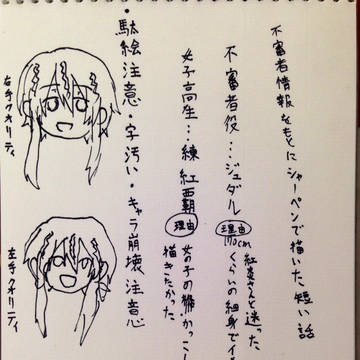 不審者情報をもとにシャーペンで描いた短い話
不審者役…ジュダル
理由
紅炎さんと迷った
170cmくらいの細身でイ
女子高生…練 紅覇
理由
女の子の描かっこ
描きたかった
・駄絵注意・字汚い・キャラ崩壊注意
右手クオリティ
左手クオリティ